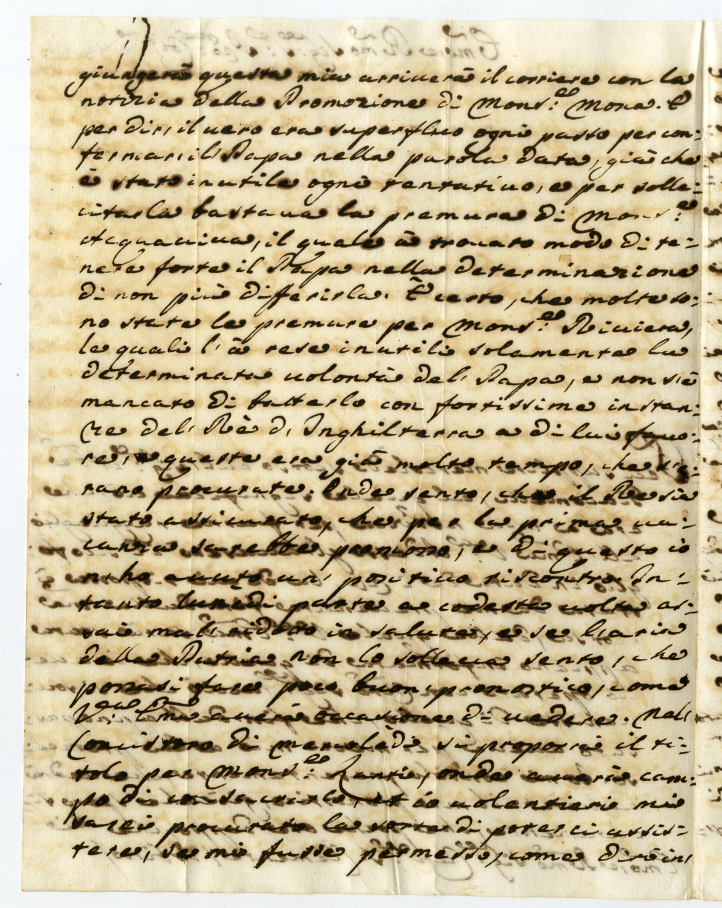 giungerà questa mia arriverà il corriere con la
notizia della Promozione di Mons.re Mona. E
per dir, il vero era superfluo ogni passo per con-
fermar, il Papa nella parola data, già che
è stato inutile ogni tentativo, e per solle-
citarla bastava la premura di Mons.re
Acquaviva, il quale à trovato modo di te-
nere forte il Papa nella determinazione
di non più differirla. È certo, che molte so-
no state le premure per Mons.re Riviera,
le quali l'à rese inutili solamente la
determinata volontà del Papa, e non s'è
mancato di batterlo con fortissime instan-
ze del Rè d'Inghilterra a di lui favo-
re, e queste era già molto tempo, che s'e-
rano procurate. Onde sento, che il Re sia
stato assicurato, che per la prima va-
canza sarebbe promosso, e di questo io
n'ho avuto un positivo riscontro. In-
tanto lunedì parte a codesta volta as-
sai mal ridotto in salute, e se l'aria
della Patria non lo solleva sento, che
possasi fare poco buon pronostico, come
V. Em.a averà occasione di vedere. Nel
Concistoro di mercoledì si propose il ti-
tolo per Mons.re onde avarà cam-
po di consacrarlo, et io volentieri mi
sarei procurato la sorte di poterci assis-
tere, se mi fusse permesso, come dirò in,